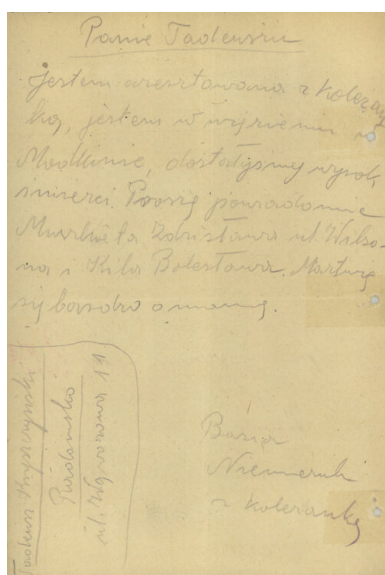 Panie Tadeuszu
Jestem aresztowana z koleżan
ką, jestem w więzieniu w
Modlinie, dostałyśmy wyrok
śmierci. Proszę powiadomić
Zdzisława ul. Wilso-
na i Kila Bolesława. Martwię
się bardzo o mamę.
Basia
z koleżanką
Tadeusz
Radomsko
ul. 19